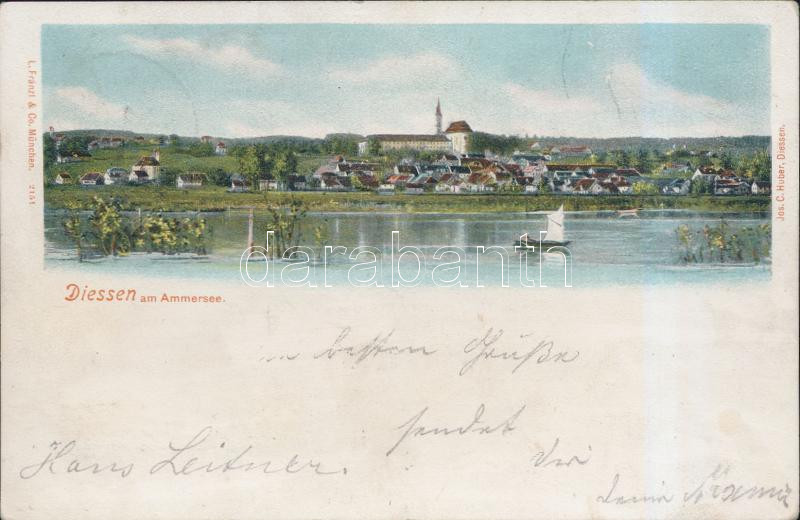 L. Fränzl & Co. München. 2151
Jos. C. Huber, Diessen.
darabanth
Diessen am Ammersee.
besten Grüße
sendet
Hans Leitner.